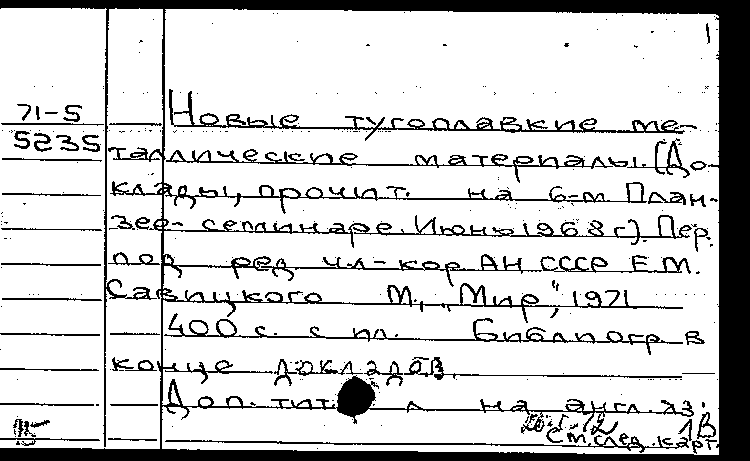 1
71-5
5235
Новые тугоплавкие ме-
таллические материалы. (До-
клады, прочит. на 6-м План-
зее-семинаре. Июнь 1968 г). Пер.
под ред чл-кор АН СССР Е.М.
Савицкого М., "Мир", 1971
400 с. с ил. Библиогр в
конце докладов.
Доп. тит. л на англ. яз.
1В
См. след. карт.